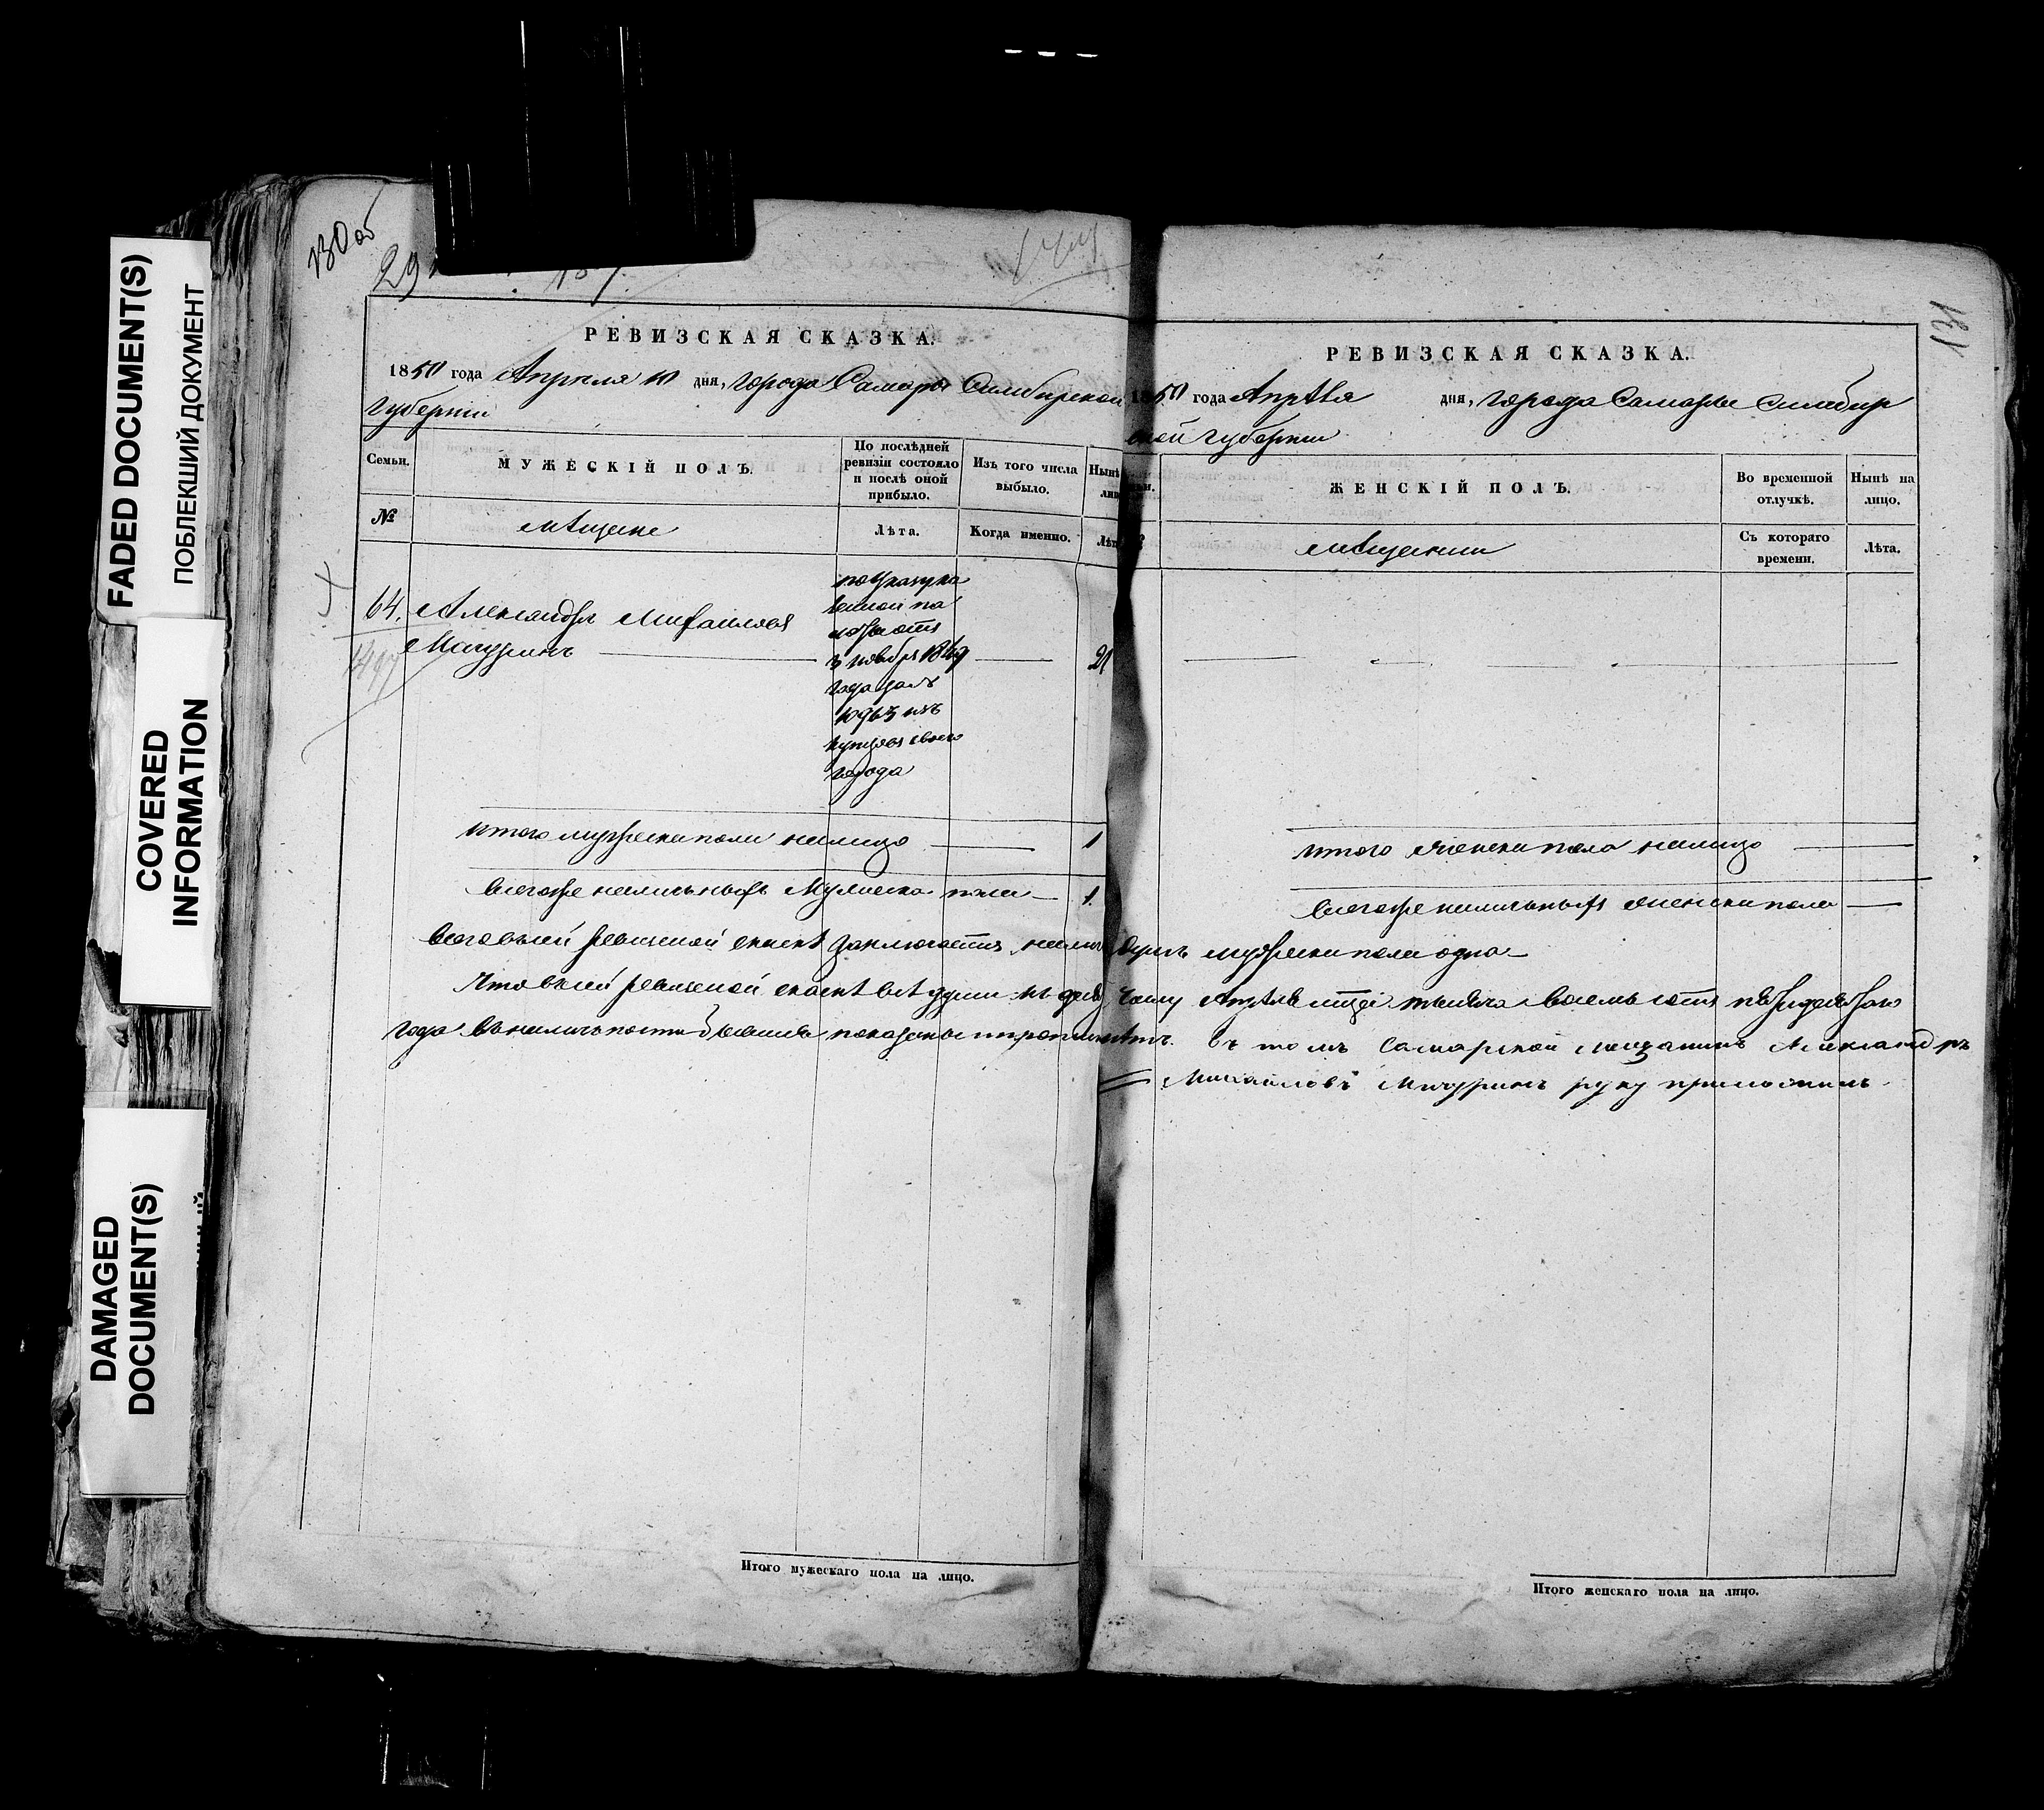 FADED DOCUMENT(S)
ПОБЛЕКШИЙ ДОКУМЕНТ
COVERED
INFORMATION
DAMAGED
DOCUMENT(S)
130 об
29
РЕВИЗСКАЯ СКАЗКА.
1850 года Апреля 10 дня, города Самары Симбирской
губернии
Семьи.
МУЖЕСКІЙ ПОЛЪ.
По послѣдней
ревизіи состояло
и послѣ оной
прибыло.
Изъ того числа
выбыло.
Нынѣ
№
мѣщане
Лѣта.
Когда именно.
Лѣт
64. Александръ Михайловъ
Мичуринъ
по указу ка
зенной па
латы
3 ноября 1849
года за №
10963 изъ
купцовъ своего
города
21
Итого мужеска пола налицо 1
Всего же наличныхъ мужеска пола 1.
131
РЕВИЗСКАЯ СКАЗКА.
1850 года Апрѣля дня, города Самары Симбир
ской губернии
ЖЕНСКІЙ ПОЛЪ.
Во временной
отлучкѣ.
Нынѣ на
лицо.
мѣщанки
Съ котораго
времени.
Лѣта.
Итого женска пола налицо
Всего же наличныхъ женска пола
Всего въ сей ревизской сказкѣ заключается налич душъ мужеска пола одна
Что въ сей ревизской сказкѣ всѣ души къ тысяча восемь сотъ
года въ наличности бывшія показаны и прописныхъ нѣтъ. Въ томъ Самарской мещанинъ Александръ
Михайловъ Мичуринъ руку приложилъ
Итого мужескаго пола на лицо.
Итого женскаго пола на лицо.